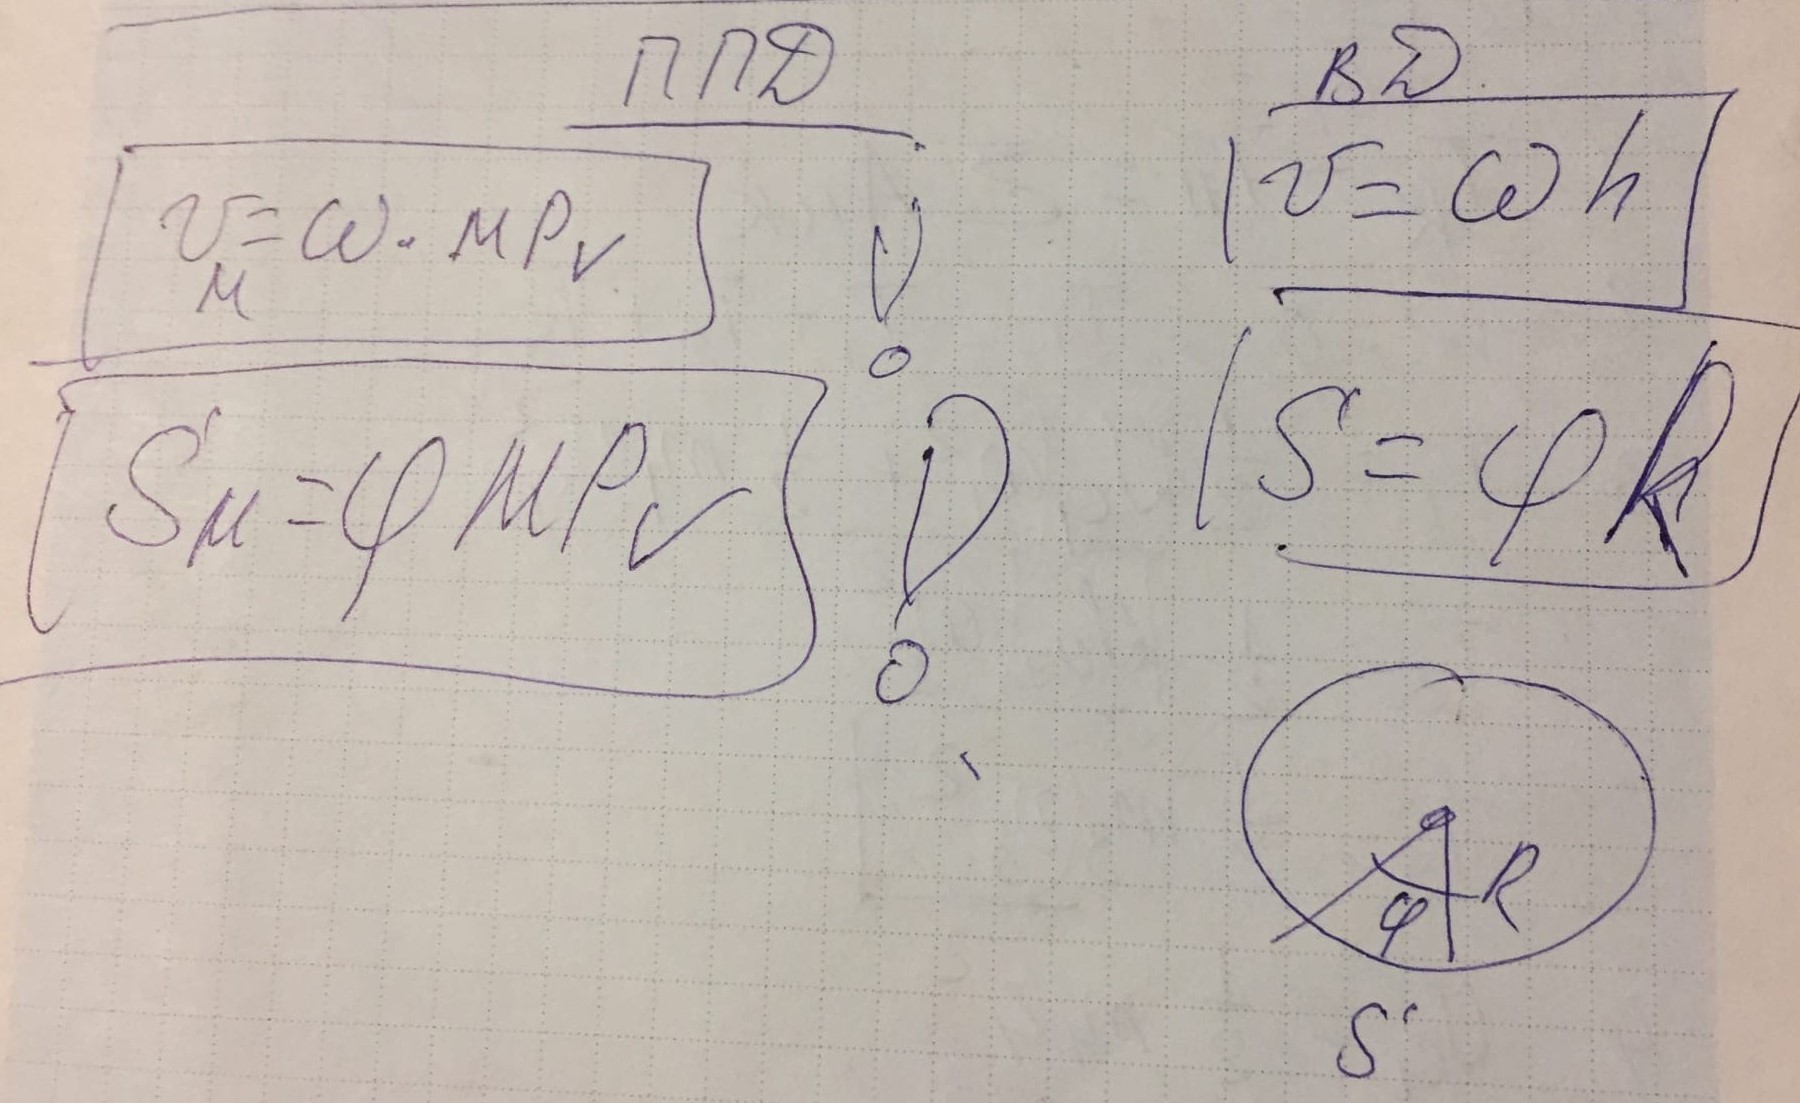 ППД
v_M = ω · MP_v !
S_M = φ MP_v !
ВД
v = ω h
S = φ R
φ R
S